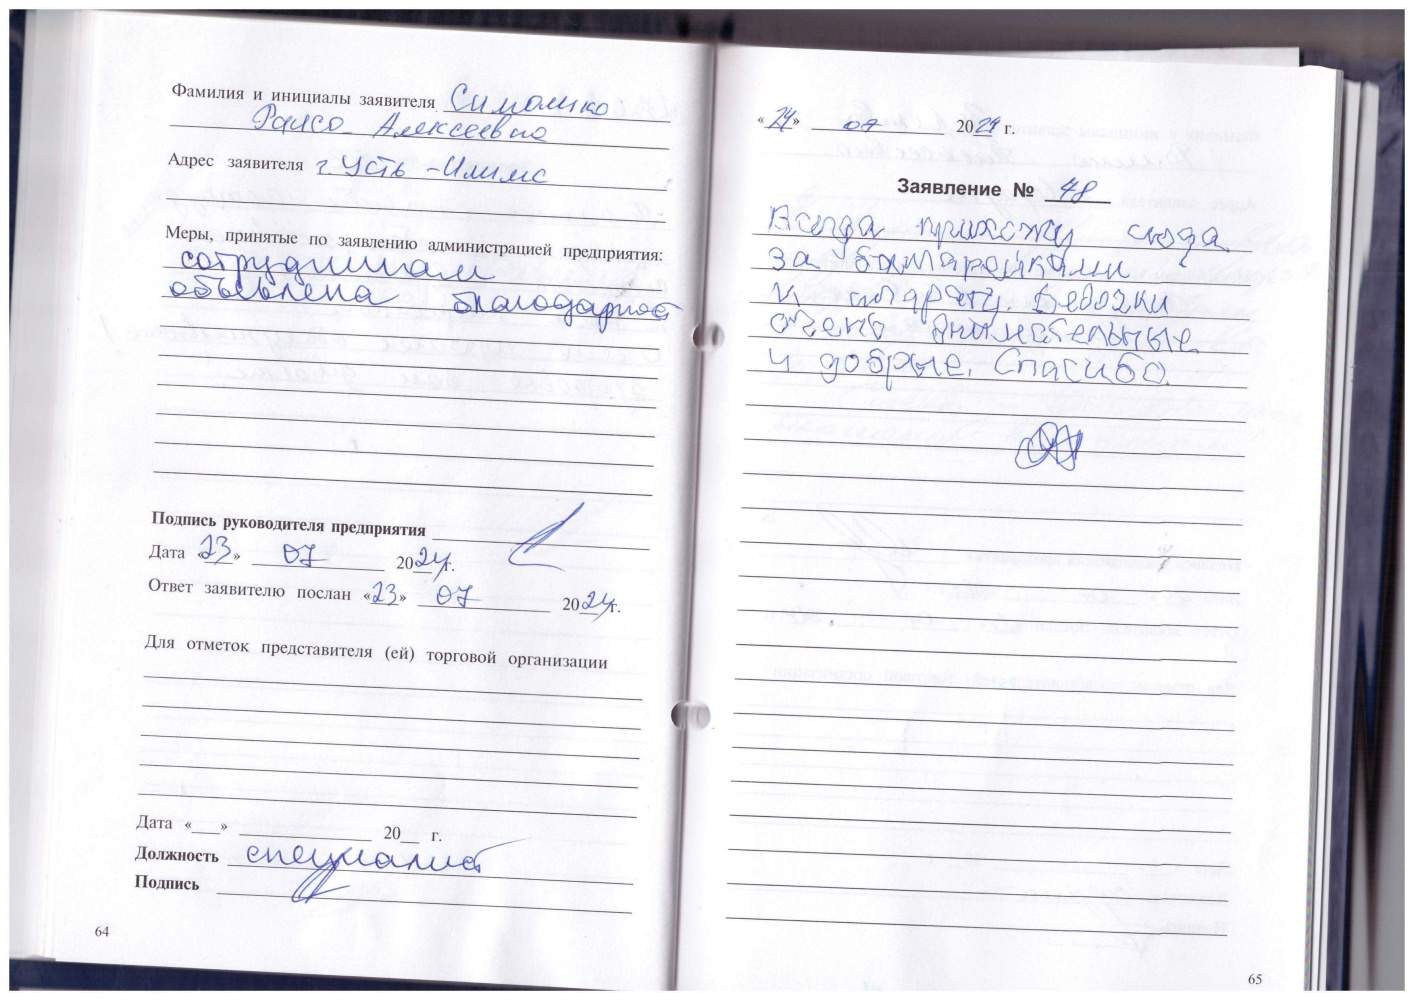 Фамилия и инициалы заявителя Симолико
Раиса Алексеевна
Адрес заявителя г. Усть-Илимс
Меры, принятые по заявлению администрацией предприятия:
сотрудникам
объявлена благодарност
Подпись руководителя предприятия
Дата «23» 07 2024г.
Ответ заявителю послан «23» 07 2024г.
Для отметок представителя (ей) торговой организации
Дата «___» ____ 20__ г.
Должность специалист
Подпись
64
«24» 07 2024 г.
Заявление № 48
Всегда прихожу сюда
за батарейками
к аппарату. Девочки
очень внимательные
и добрые. Спасибо.
65